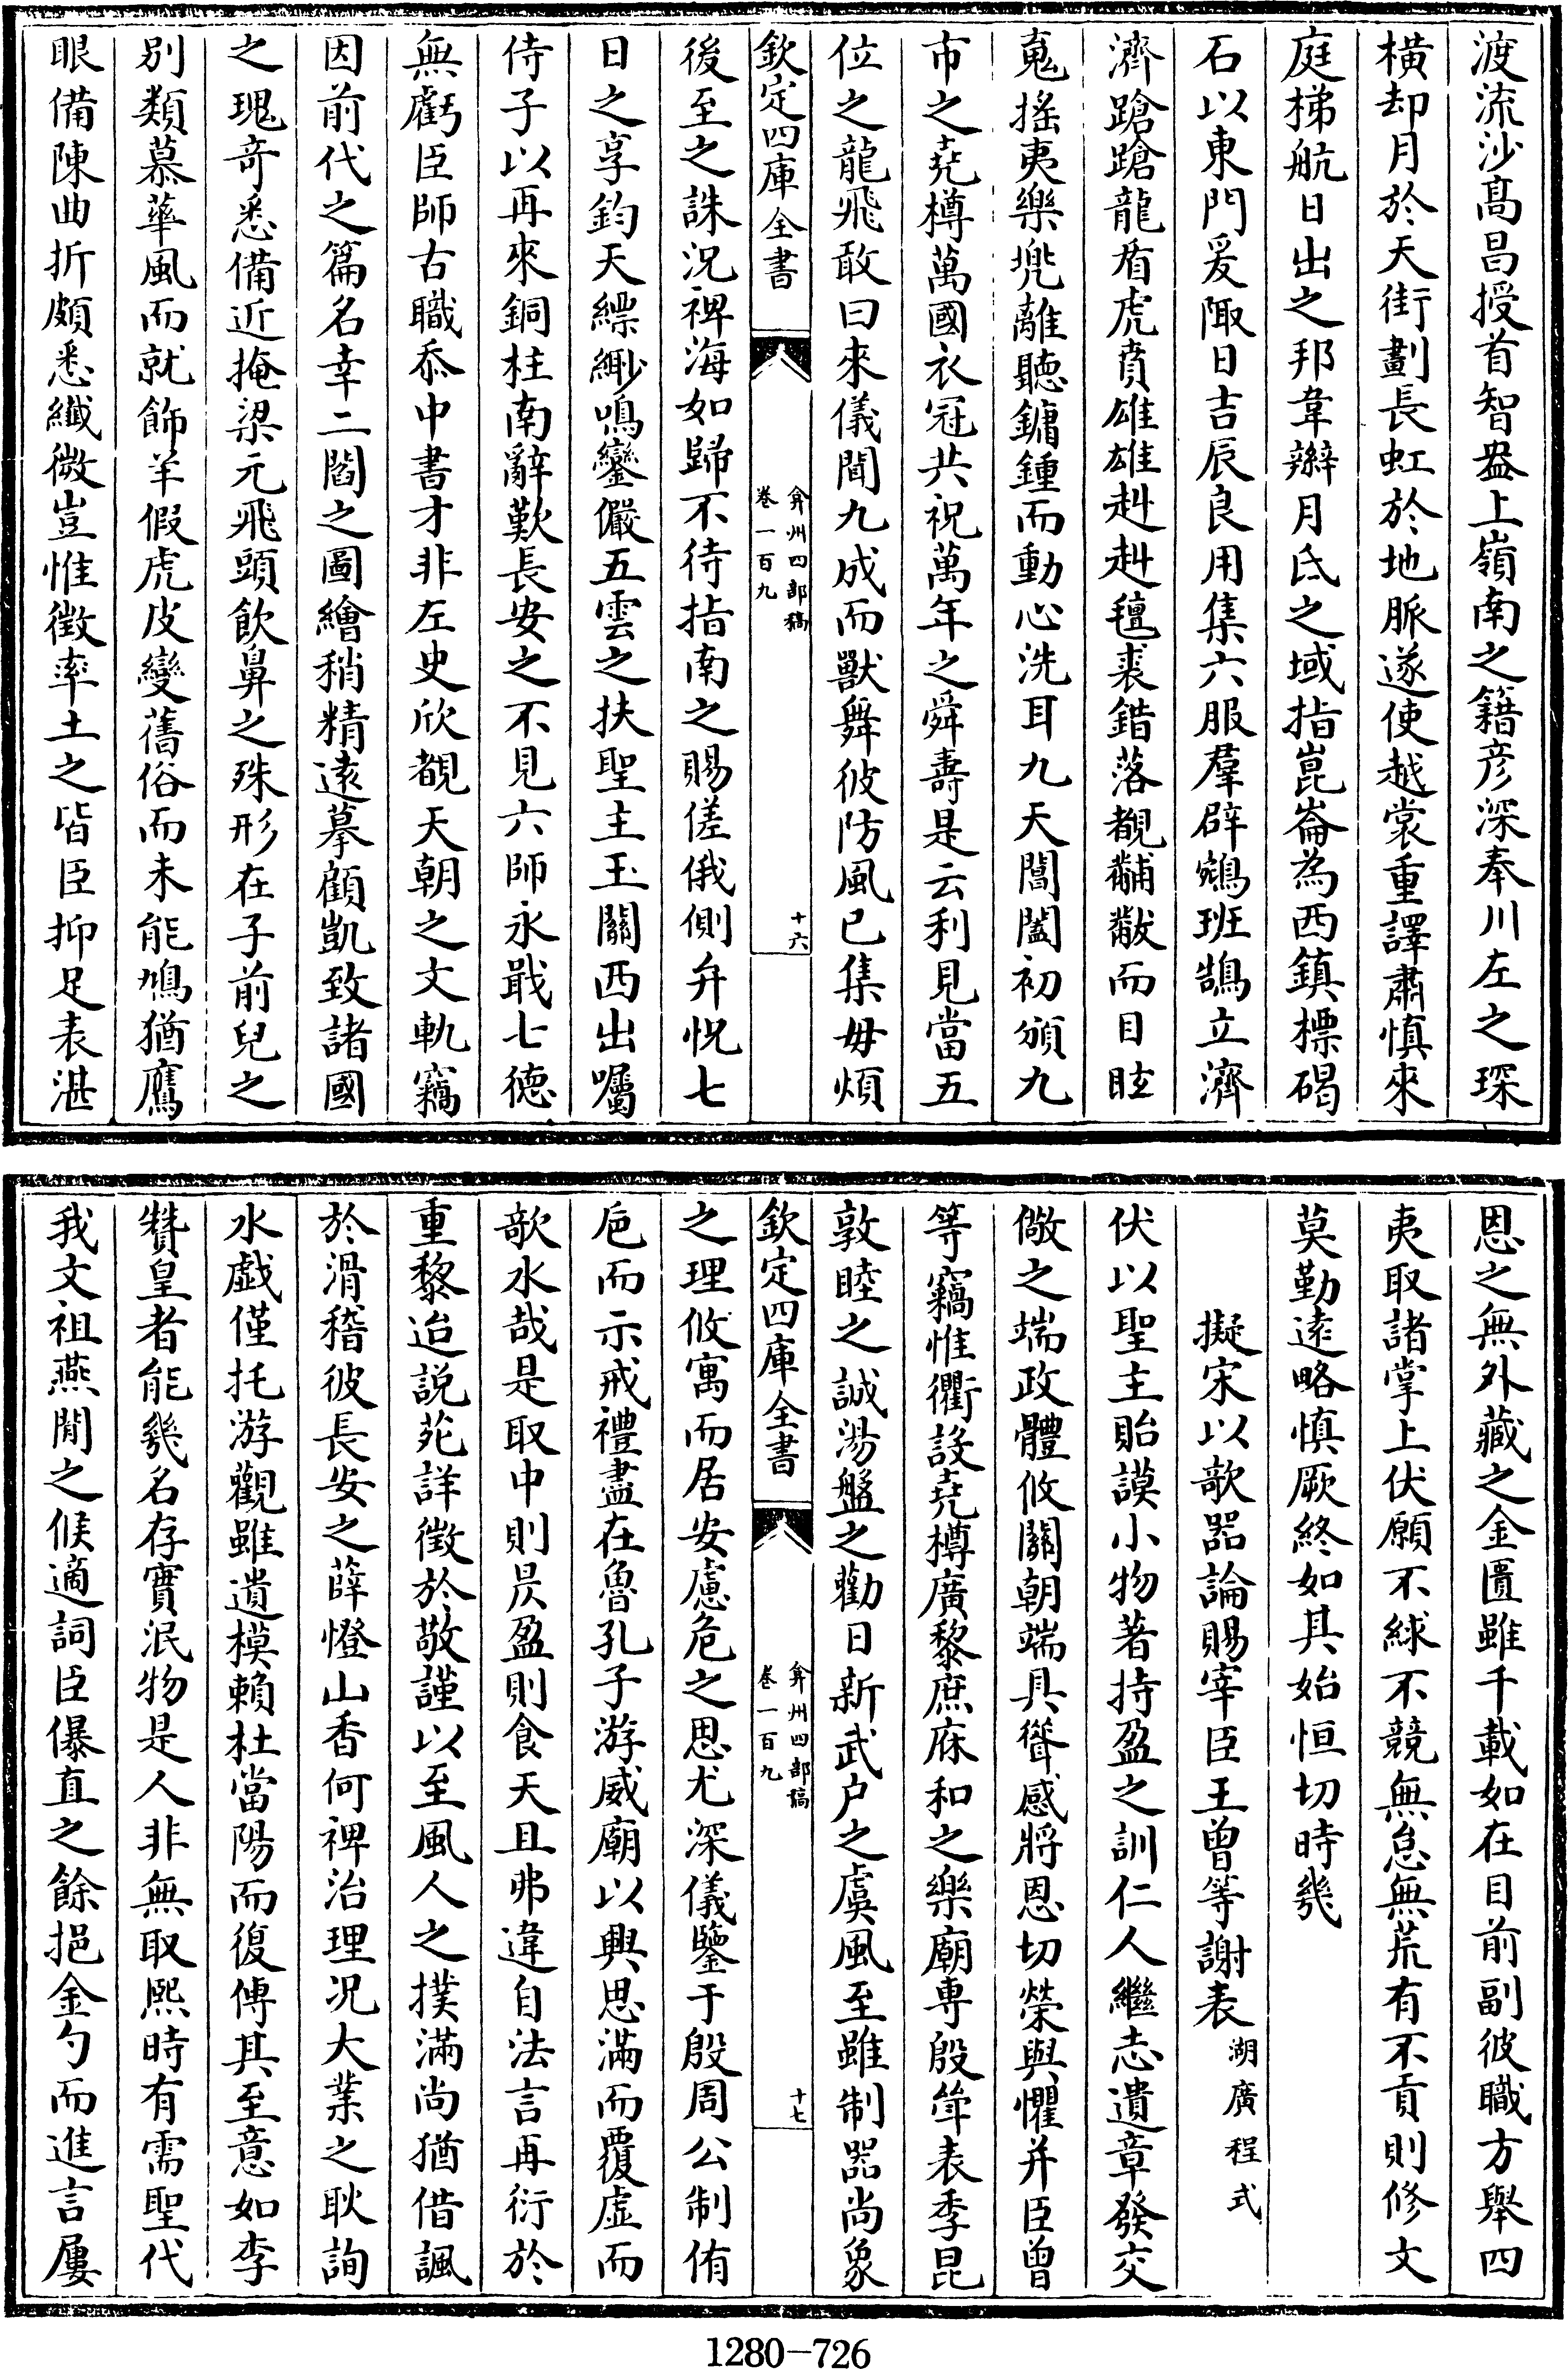 渡流沙髙昌授首智盎上嶺南之籍彦深奉川左之琛
橫却月於天街劃長虹於地脈遂使越裳重譯肅慎來
庭梯航日出之邦韋辮月氐之域指崑崙為西鎮標碣
石以東門爰陬日吉辰良用集六服羣辟鵷班鵠立濟
濟蹌蹌龍盾虎賁雄雄赳赳氊裘錯落覩黼黻而目眩
嵬搖夷樂兠離聽鏞鍾而動心洗耳九天閶闔初頒九
市之堯樽萬國衣冠共祝萬年之舜壽是云利見當五
位之龍飛敢曰來儀聞九成而獸舞彼防風已集毋煩
欽定四庫全書
弇州四部稿
卷一百九
十六
後至之誅況裨海如歸不待指南之賜傞俄側弁怳七
日之享鈞天縹緲鳴鑾儼五雲之扶聖主玉關西出囑
侍子以再來銅柱南辭歎長安之不見六師永戢七德
無虧臣師古職忝中書才非左史欣覩天朝之文軌竊
因前代之篇名幸二閻之圖繪稍精遠摹顧凱致諸國
之瑰奇悉備近掩梁元飛頭飲鼻之殊形在子前兒之
别類慕華風而就飾羊假虎皮變舊俗而未能鳩猶鷹
眼備陳曲折頗悉纖微豈惟徵率土之皆臣抑足表湛
恩之無外藏之金匱雖千載如在目前副彼職方舉四
夷取諸掌上伏願不絿不競無怠無荒有不貢則修文
莫勤逺略慎厥終如其始恒切時幾
擬宋以欹器論賜宰臣王曾等謝表湖廣程式
伏以聖主貽謨小物著持盈之訓仁人繼志遺章發交
儆之端政體攸關朝端具聳感將恩切榮與懼并臣曾
等竊惟衢設堯樽廣黎庶庥和之樂廟専殷斝表季昆
敦睦之誠湯盤之勸日新武户之虞風至雖制器尚象
欽定四庫全書
弇州四部稿
卷一百九
十七
之理攸寓而居安慮危之思尤深儀鑒于殷周公制侑
巵而示戒禮盡在魯孔子游威廟以興思滿而覆虚而
欹水哉是取中則昃盈則食天且弗違自法言再衍於
重黎迨説苑詳徴於敬謹以至風人之撲滿尚猶借諷
於滑稽彼長安之薛燈山香何裨治理况大業之耿詢
水戲僅托游觀雖遺模賴杜當陽而復傳其至意如李
贊皇者能幾名存實泯物是人非無取熙時有需聖代
我文祖燕閒之候適詞臣儤直之餘挹金勺而進言屢
1280—726